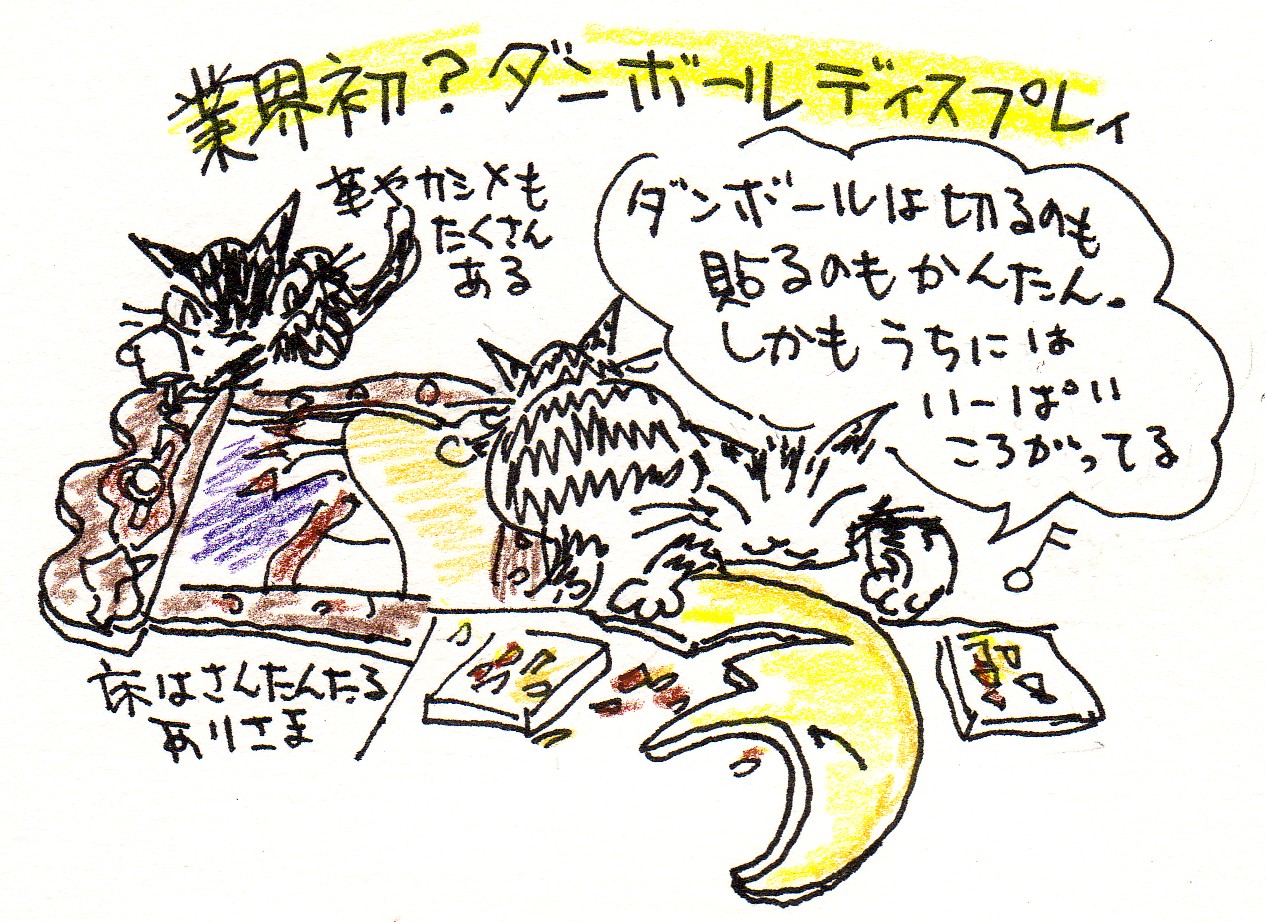 業界初?ダンボールディスプレィ
革やカシメも
たくさん
ある
ダンボールは切るのも
貼るのもかんたん。
しかもうちには
いーぱい
ころがってる
床はさんたんたる
ありさま